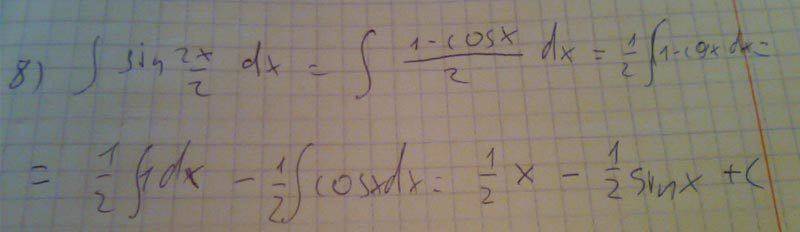 8) ∫ sin 2x/2 dx = ∫ (1-cosx)/2 dx = 1/2 ∫ 1-cosx dx =
= 1/2 ∫ 1dx - 1/2 ∫ cosxdx = 1/2 x - 1/2 sinx + C